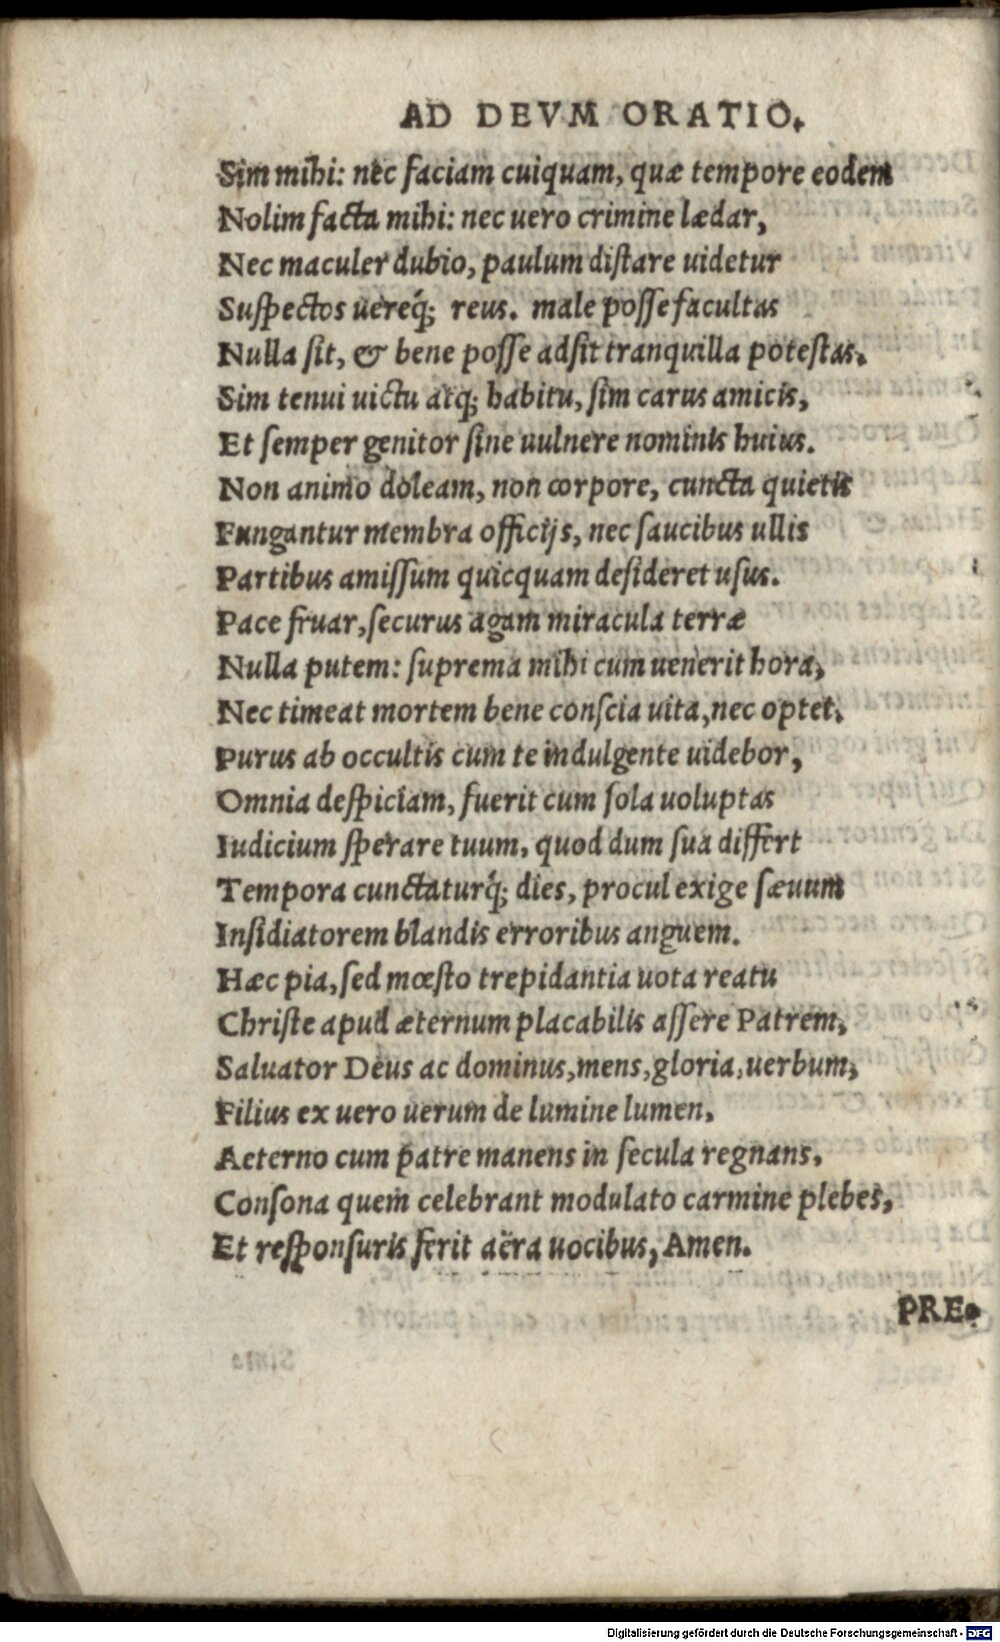 AD DEVM ORATIO.
Sim mihi: nec faciam cuiquam, quæ tempore eodem
Nolim facta mihi: nec uero crimine lædar,
Nec maculer dubio, paulum distare uidetur
Suſpectos uereq́; reus. male poſſe facultas
Nulla ſit, & bene poſſe adſit tranquilla poteſtas.
Sim tenui uictu atq; habitu, ſim carus amicis,
Et ſemper genitor ſine uulnere nominis huius.
Non animo doleam, non corpore, cuncta quietis
Fungantur membra officijs, nec ſaucibus ullis
Partibus amiſſum quicquam deſideret uſus.
Pace fruar, ſecurus agam miracula terræ
Nulla putem: ſuprema mihi cum uenerit hora,
Nec timeat mortem bene conſcia uita, nec optet.
Purus ab occultis cum te indulgente uidebor,
Omnia deſpiciam, fuerit cum ſola uoluptas
Iudicium ſperare tuum, quod dum ſua differt
Tempora cunctaturq́; dies, procul exige ſæuum
Inſidiatorem blandis erroribus anguem.
Hæc pia, ſed mœſto trepidantia uota reatu
Chriſte apud æternum placabilis aſſere Patrem,
Saluator Deus ac dominus, mens, gloria, uerbum,
Filius ex uero uerum de lumine lumen,
Aeterno cum patre manens in ſecula regnans,
Conſona quem celebrant modulato carmine plebes,
Et reſponſuris ferit aëra uocibus, Amen.
PRE-
Digitalisierung gefördert durch die Deutsche Forschungsgemeinschaft - DFG